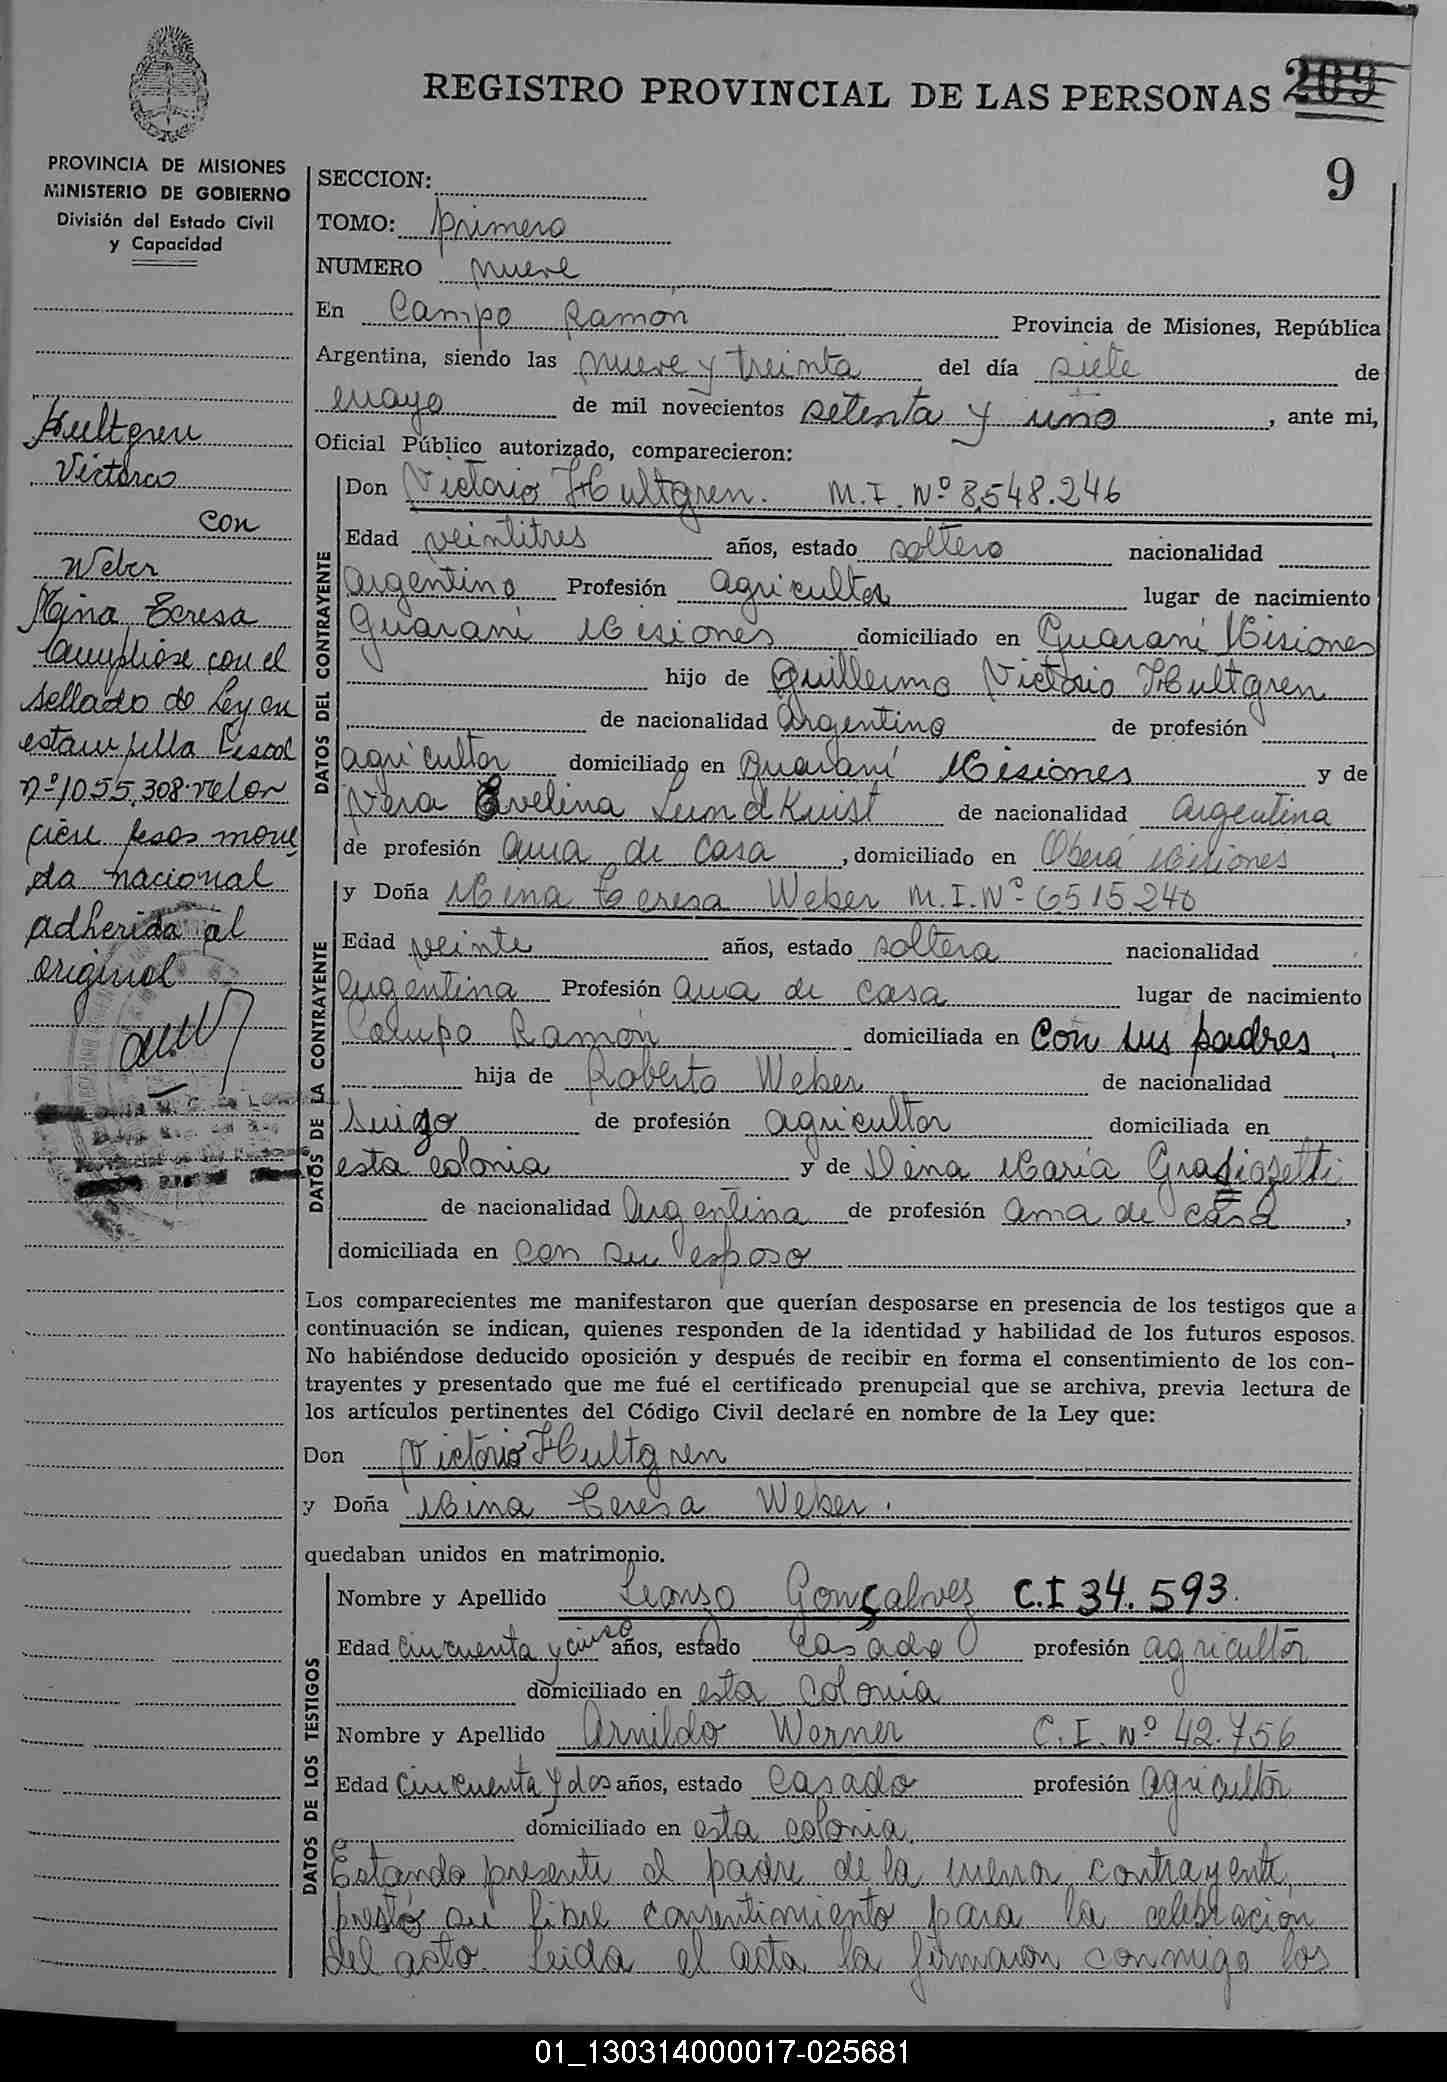 REGISTRO PROVINCIAL DE LAS PERSONAS 209
9
PROVINCIA DE MISIONES
MINISTERIO DE GOBIERNO
División del Estado Civil
y Capacidad
Hultgren
Victorio
con
Weber
Mina Teresa
Cumpliose con el
sellado de Ley en
estampilla Fiscal
nº 1055,308 valor
cien pesos mone
da nacional
adherida al
original
SECCION:
TOMO: primero
NUMERO nueve
En Campo Ramón Provincia de Misiones, República
Argentina, siendo las nueve y treinta del día siete de
mayo de mil novecientos setenta y uno, ante mi,
Oficial Público autorizado, comparecieron:
DATOS DEL CONTRAYENTE
Don Victorio Hultgren. M.I. Nº 8,548.246
Edad veintitres años, estado soltero nacionalidad
argentino Profesión agricultor lugar de nacimiento
Guaraní Misiones domiciliado en Guaraní Misiones
hijo de Guillermo Victorio Hultgren
de nacionalidad Argentino de profesión
agricultor domiciliado en Guaraní Misiones y de
Vera Evelina Lundkuist de nacionalidad argentina
de profesión ama de casa, domiciliado en Oberá Misiones
DATOS DE LA CONTRAYENTE
y Doña Mina Teresa Weber M.I. Nº 6515.240
Edad veinte años, estado soltera nacionalidad
argentina Profesión ama de casa lugar de nacimiento
Campo Ramón domiciliada en con sus padres.
hija de Roberto Weber de nacionalidad
Suizo de profesión agricultor domiciliada en
esta colonia y de Dena María Grasiosetti
de nacionalidad Argentina de profesión ama de casa,
domiciliada en con su esposo
Los comparecientes me manifestaron que querían desposarse en presencia de los testigos que a
continuación se indican, quienes responden de la identidad y habilidad de los futuros esposos.
No habiéndose deducido oposición y después de recibir en forma el consentimiento de los con-
trayentes y presentado que me fué el certificado prenupcial que se archiva, previa lectura de
los artículos pertinentes del Código Civil declaré en nombre de la Ley que:
Don Victorio Hultgren
y Doña Mina Teresa Weber.
quedaban unidos en matrimonio.
DATOS DE LOS TESTIGOS
Nombre y Apellido Gonçalvez C.I 34.593.
Edad cincuenta y cinco años, estado casado profesión agricultor
domiciliado en esta colonia
Nombre y Apellido Arnildo Werner C.I. Nº 42.756
Edad cincuenta y dos años, estado casado profesión agricultor
domiciliado en esta colonia.
Estando presente el padre de la menor contrayente,
prestó su libre consentimiento para la celebración
del acto. Leida el acta la firmaron conmigo los
01_130314000017-025681